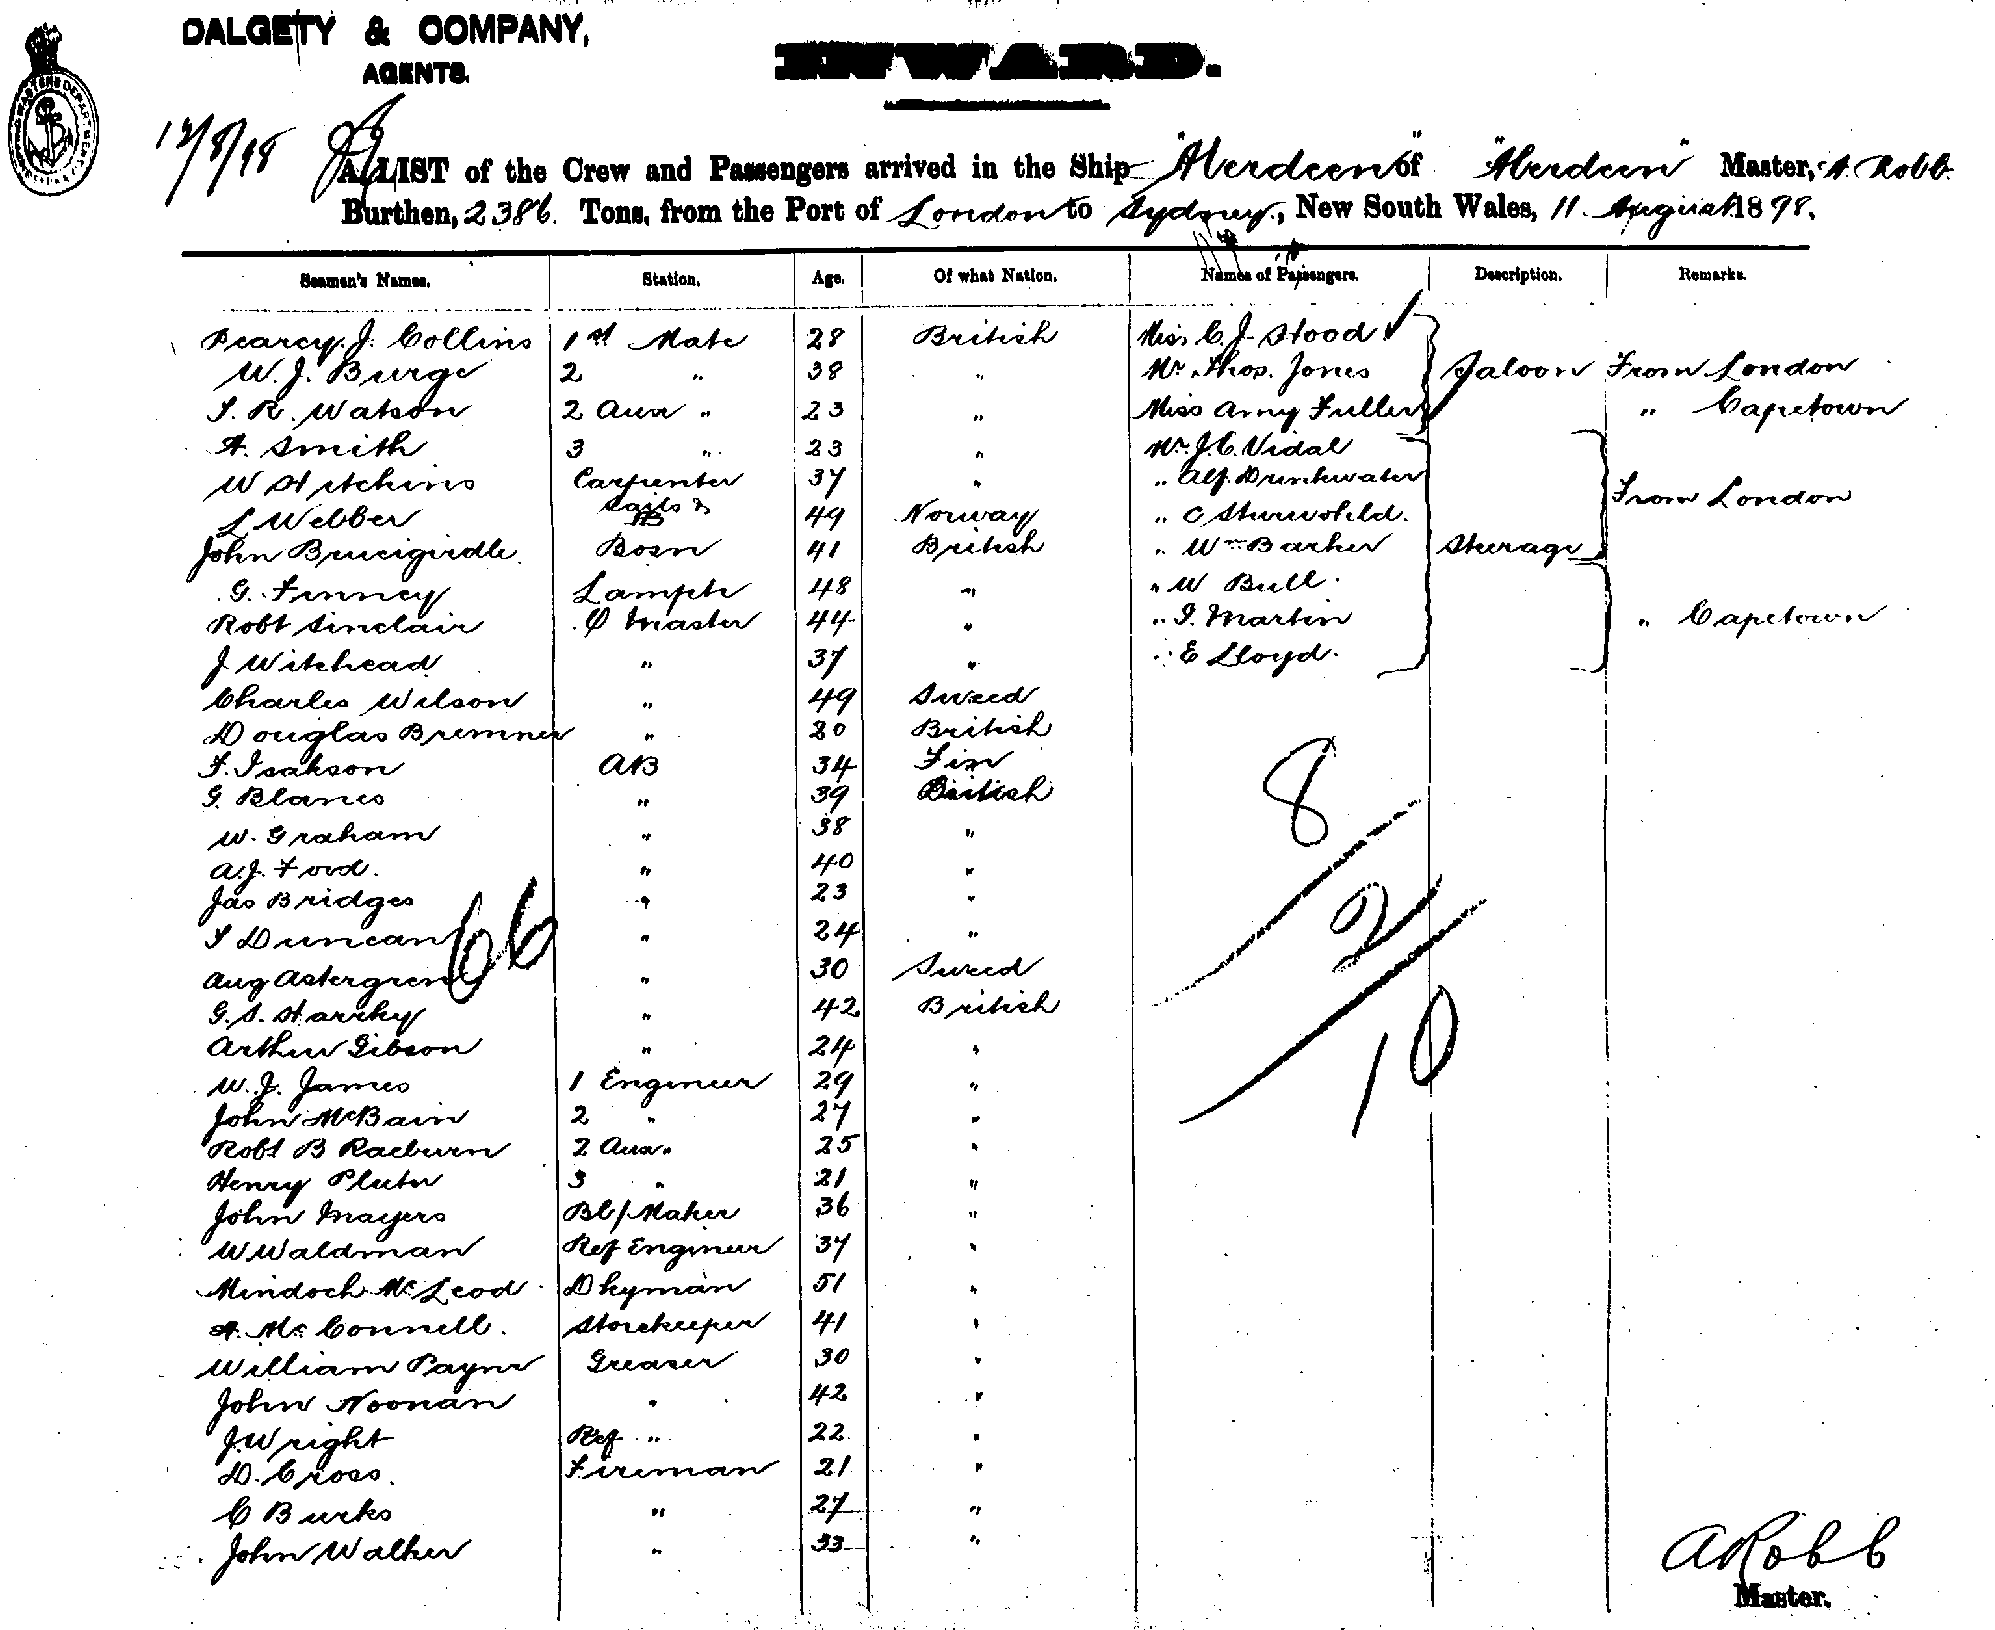 DALGETY & COMPANY,
AGENTS.
INWARD.
12/8/98
A LIST of the Crew and Passengers arrived in the Ship "Aberdeen" of "Aberdeen" Master, A. Robb
Burthen, 2386. Tons, from the Port of London to Sydney, New South Wales, 11 August 1898.
Seamen's Names. Station. Age. Of what Nation. Names of Passengers. Description. Remarks.
Pearcy. J. Collins 1st Mate 28 British Miss C. J. Stood
W. J. Burge 2 " 38 " Mr Thos. Jones Saloon From London
S. R. Watson 2 Aux " 23 " Miss Amy Fuller " Capetown
A. Smith 3 " 23 " Mr. J. C. Vidal
W Hitchins Carpenter 37 " " Alf. Drinkwater
L Webber Sails & AB 49 Norway " C From London
John Brucigirdle Bosn 41 British " Wm Barker Sterage
G. Finney Lamptr 48 " " W Bull.
Robt Sinclair Q Master 44 " " J. Martin " Capetown
J Witehead " 37 " " E Lloyd.
Charles Wilson " 49 Sweed
Douglas Bremner " 20 British
F. Isakson AB 34 Fin
G. Blanes " 39 British
W. Graham " 38 "
A. J. Ford. " 40 "
Jas Bridges " 23 "
S Duncan " 24 "
Aug Astergren " 30 Sweed
G. S. Starrky " 42 British
Arthur Gibson " 24 "
W. J. James 1 Engineer 29 "
John McBain 2 " 27 "
Robt B Raeburn 2 Aux " 25 "
Henry Pluter 3 " 21 "
John Mayers Bl/Maker 36 "
W Waldman Ref Engineer 37 "
Mindoch McLeod Dkyman 51 "
A. McConnell. Storekeeper 41 "
William Payne Greaser 30 "
John Noonan " 42 "
J. Wright Ref " 22 "
D. Cross. Fireman 21 "
C Burks " 27 "
John Walker " 33 "
66
8
2
10
A Robb
Master.